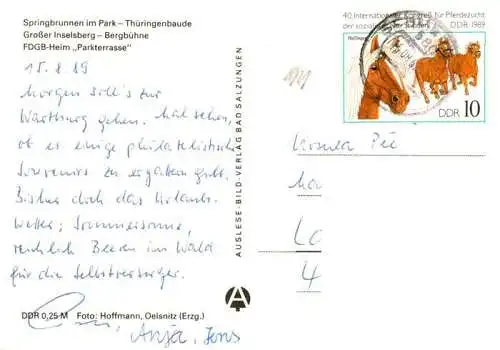 Springbrunnen im Park – Thüringenbaude
Großer Inselsberg – Bergbühne
FDGB-Heim „Parkterrasse"
15. 8. 89
Morgen soll's zur
Wartburg gehen. Mal sehen,
ob es einige philatelistische
Souvenirs zu ergattern gibt.
Bisher doch das Urlaubs-
wetter; Sommersonne,
reichlich Beeren im Wald
für die Selbstversorger.
Anja, Jens
DDR 0,25 M Foto: Hoffmann, Oelsnitz (Erzg.)
AUSLESE-BILD-VERLAG BAD SALZUNGEN
40. Internationaler Kongreß für Pferdezucht
der sozialistischen Staaten DDR 1989
Haflinger
DDR 10
Ursula
4